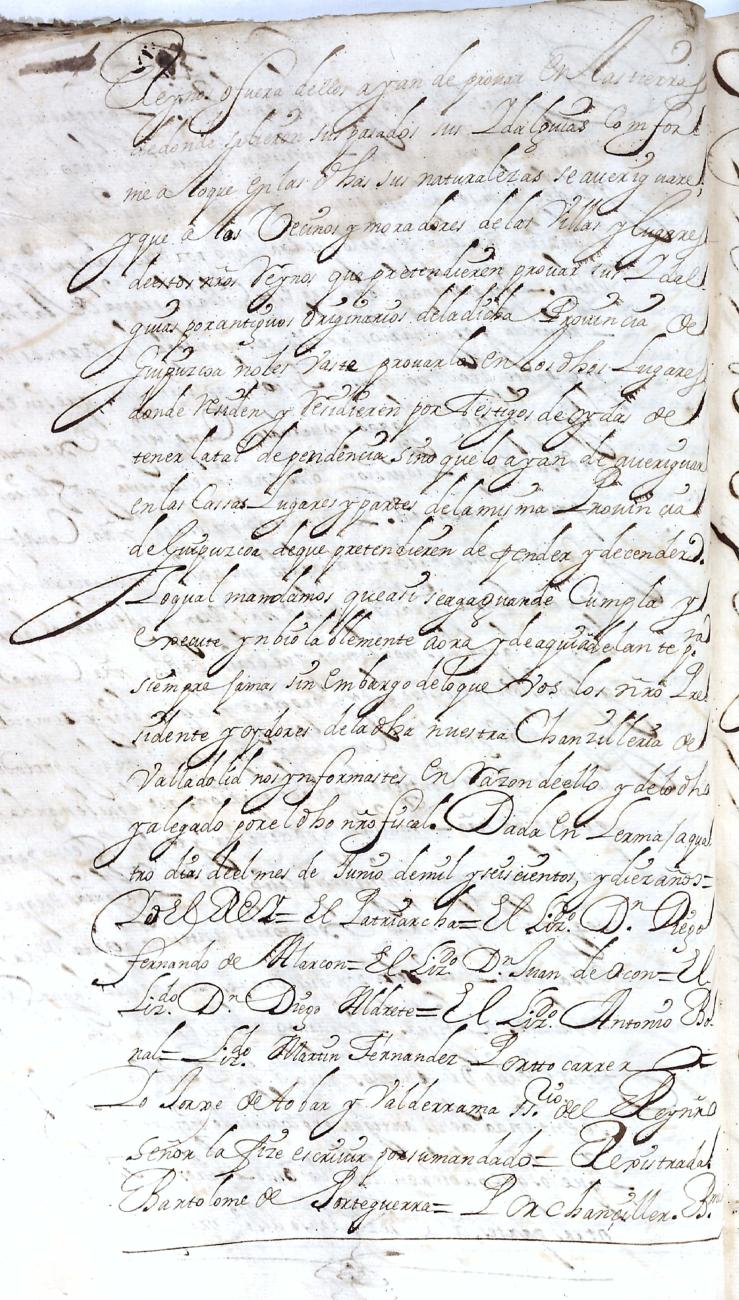 Reynos o fuera dellos ayan de provar En las tierras
de donde salieron sus pasados sus Ydalguias Comfor
me a loque En las dhas sus naturalezas se averiguare,
y que a los Vecinos y moradores de las Villas y lugares
destos nros Reynos que pretendieren provar sus Ydal
guias por antiguos Originarios de la dicha Provincia de
Guipuzcoa no les Vaste provarlo en los dhos Lugares
donde Residen y Residieren por Testigos de oydas de
tener la tal dependencia Sino que lo ayan de averiguar
en las Cassas Lugares y partes de la misma Provincia
de Guipuzcoa de que pretendieren depender y decender.
Lo qual mandamos que asi se aga guarde Cumpla y
Execute ynbiolablemente aora y de aqui adelante pa
siempre jamas sin Embargo de loque Vos los nro Pre
sidente y oydores de la dha nuestra Chanzilleria de
Valladolid nos ynformastes En Razon de ello y de lo dho
y alegado por el dho nro fiscal. Dada En Lerma a qua
tro dias del mes de Junio de mil y seiscientos, y diez años=
Yo El REY= El Patriarcha= El Lizdo Dn Diego
fernando de Alarcon= El Lizdo Dn Juan de ocon= El
Lizdo Dn Diego Aldrete= El Lizdo Antonio Bo
nal= Lizdo Martin Fernandez Portto carrero=
Yo Jorge de tobar y Valderrama srio del Rey nro
señor la fize escrivir por su mandado= Registrada
Bartolome de Porteguerra= Por chanciller.